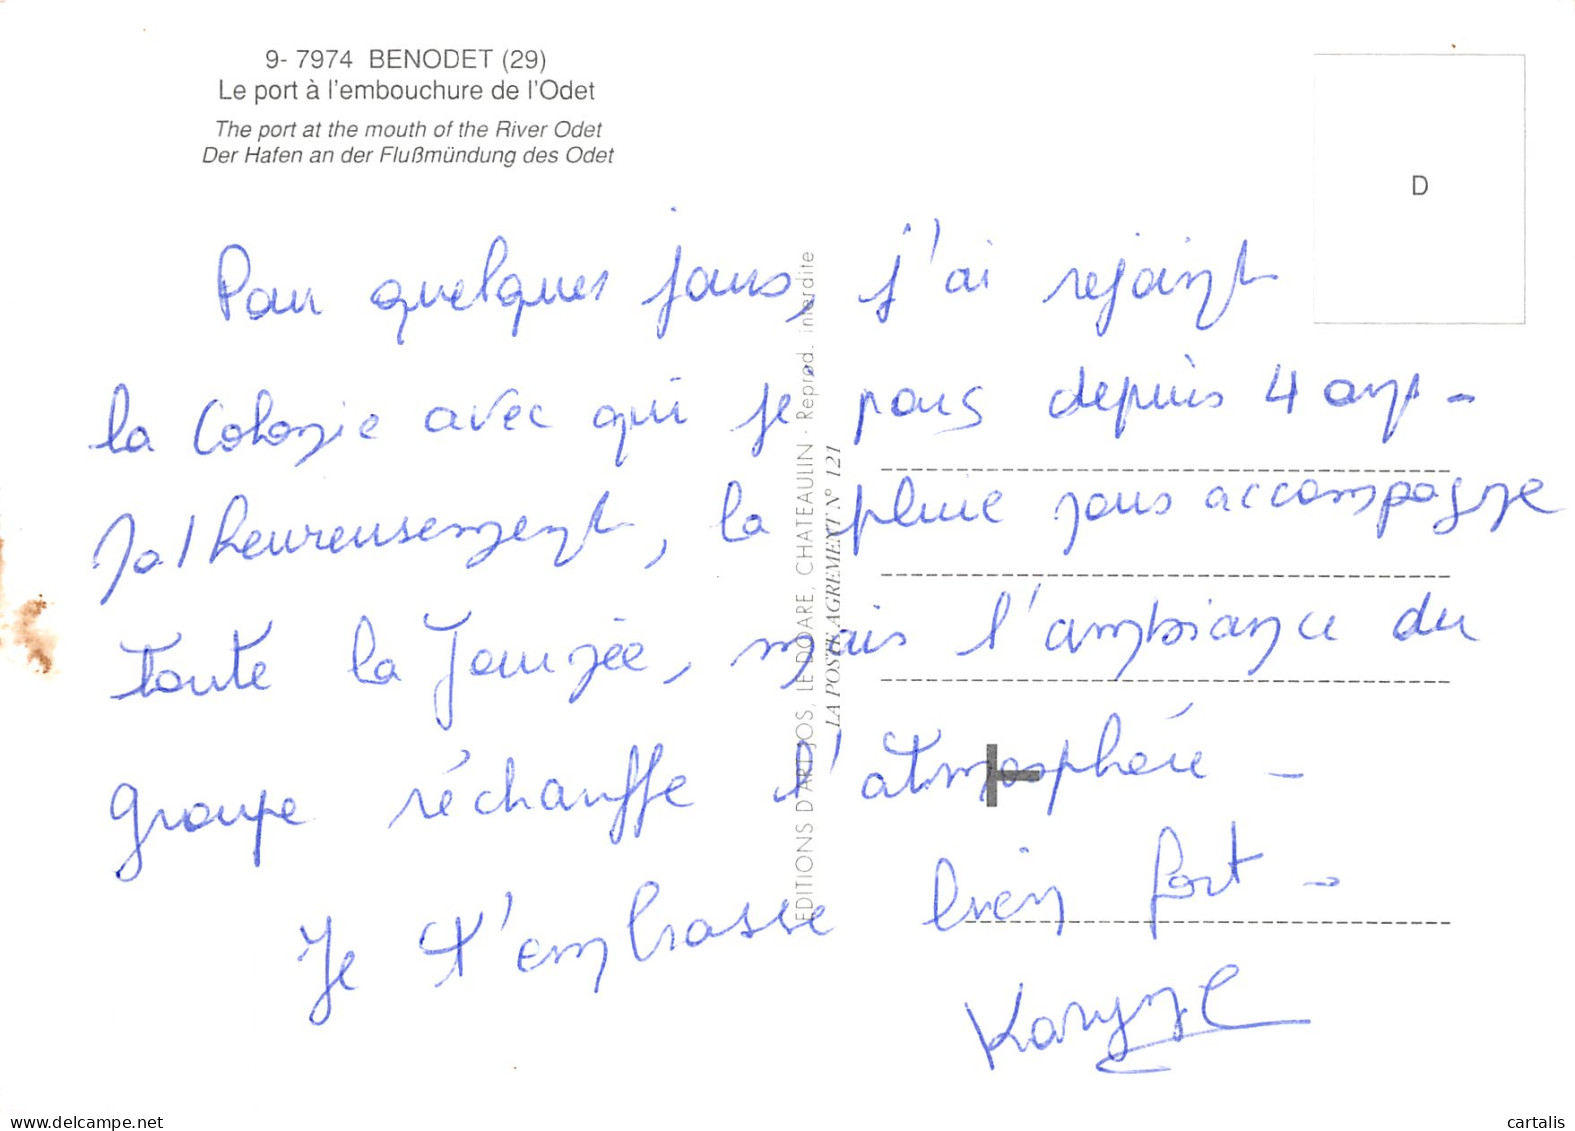 9- 7974 BENODET (29)
Le port à l'embouchure de l'Odet
The port at the mouth of the River Odet
Der Hafen an der Flußmündung des Odet
D
Pour quelques jours, j'ai rejoint
la Colonie avec qui je pars depuis 4 ans -
Malheureusement, la pluie nous accompagne
toute la Journée, mais l'ambiance du
groupe réchauffe l'atmosphère -
Je t'embrasse bien fort -
Karyne
EDITIONS D'ART JOS, LE DOARE, CHATEAULIN - Reprod. interdite
LA POSTE AGREMENT N° 121
delcampe.net
cartalis